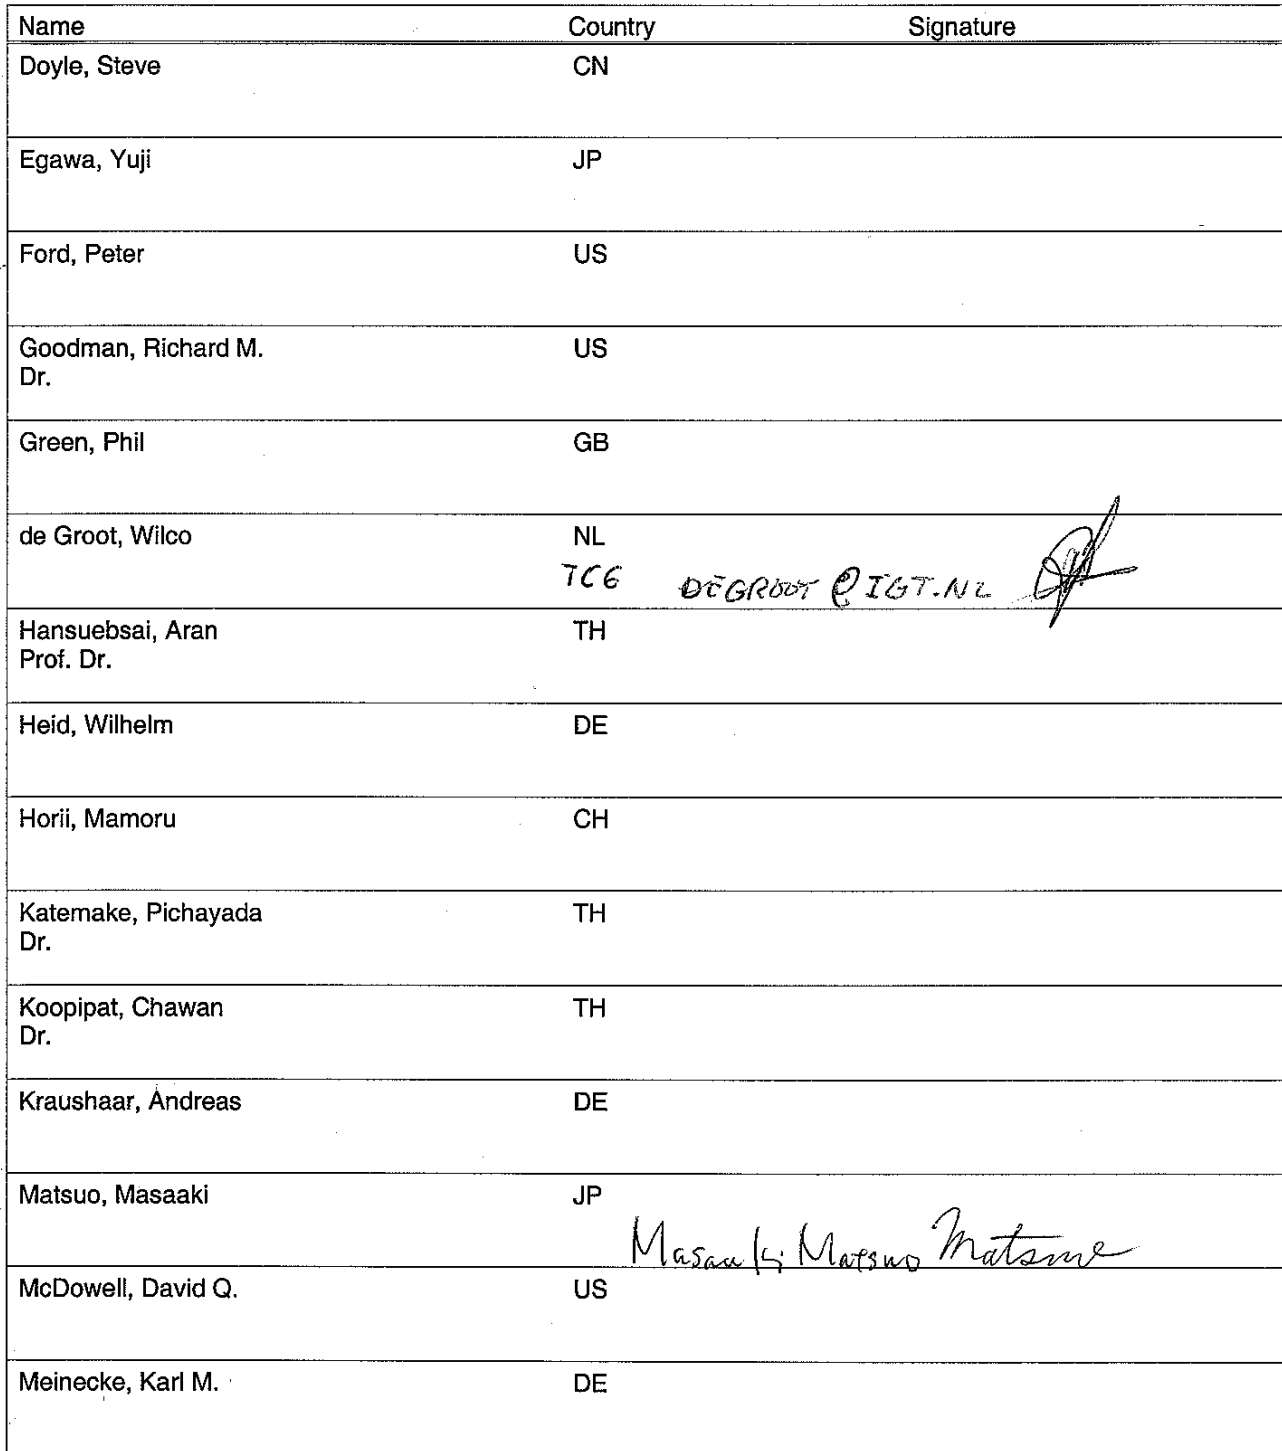 Name Country Signature
Doyle, Steve CN
Egawa, Yuji JP
Ford, Peter US
Goodman, Richard M. US
Dr.
Green, Phil GB
de Groot, Wilco NL
TC6 DEGROOT @ IGT.NL
Hansuebsai, Aran TH
Prof. Dr.
Heid, Wilhelm DE
Horii, Mamoru CH
Katemake, Pichayada TH
Dr.
Koopipat, Chawan TH
Dr.
Kraushaar, Andreas DE
Matsuo, Masaaki JP
Masaaki Matsuo
McDowell, David Q. US
Meinecke, Karl M. DE